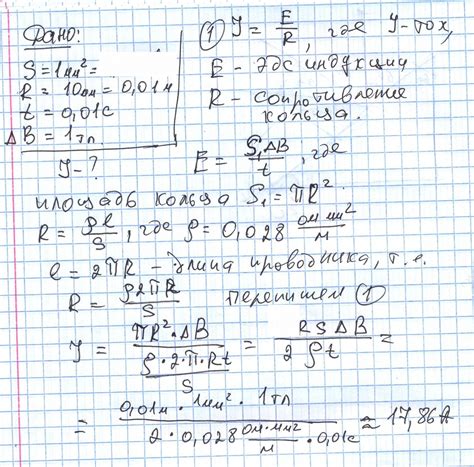 Дано:
S = 1мм² =
R = 10мм = 0,01м
t = 0,01с
ΔB = 1тл
J - ?
① J = E/R, где J - ток,
E - эдс индукции
R - сопротивление
кольца.
E = S₁ΔB/t, где
площадь кольца S₁ = πR²
R = ρl/S, где ρ = 0,028 ом мм²/м
l = 2πR - длина проводника, т.е.
R = ρ2πR/S перепишем ①
J = πR²·ΔB/(ρ·2·π·Rt/S) = RSΔB/2ρt =
= 0,01м · 1мм² · 1тл/(2·0,028 ом·мм²/м · 0,01с) ≈ 17,86А